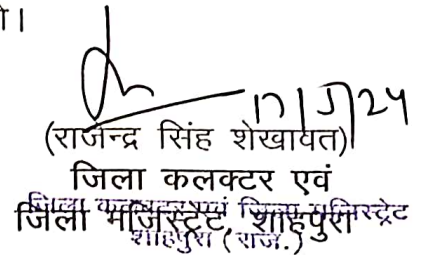 ो।
17/5/24
(राजेन्द्र सिंह शेखावत)
जिला कलक्टर एवं
जिला मजिस्ट्रेट, शाहपुरा
जिला कलक्टर एवं जिला मजिस्ट्रेट
शाहपुरा (राज.)